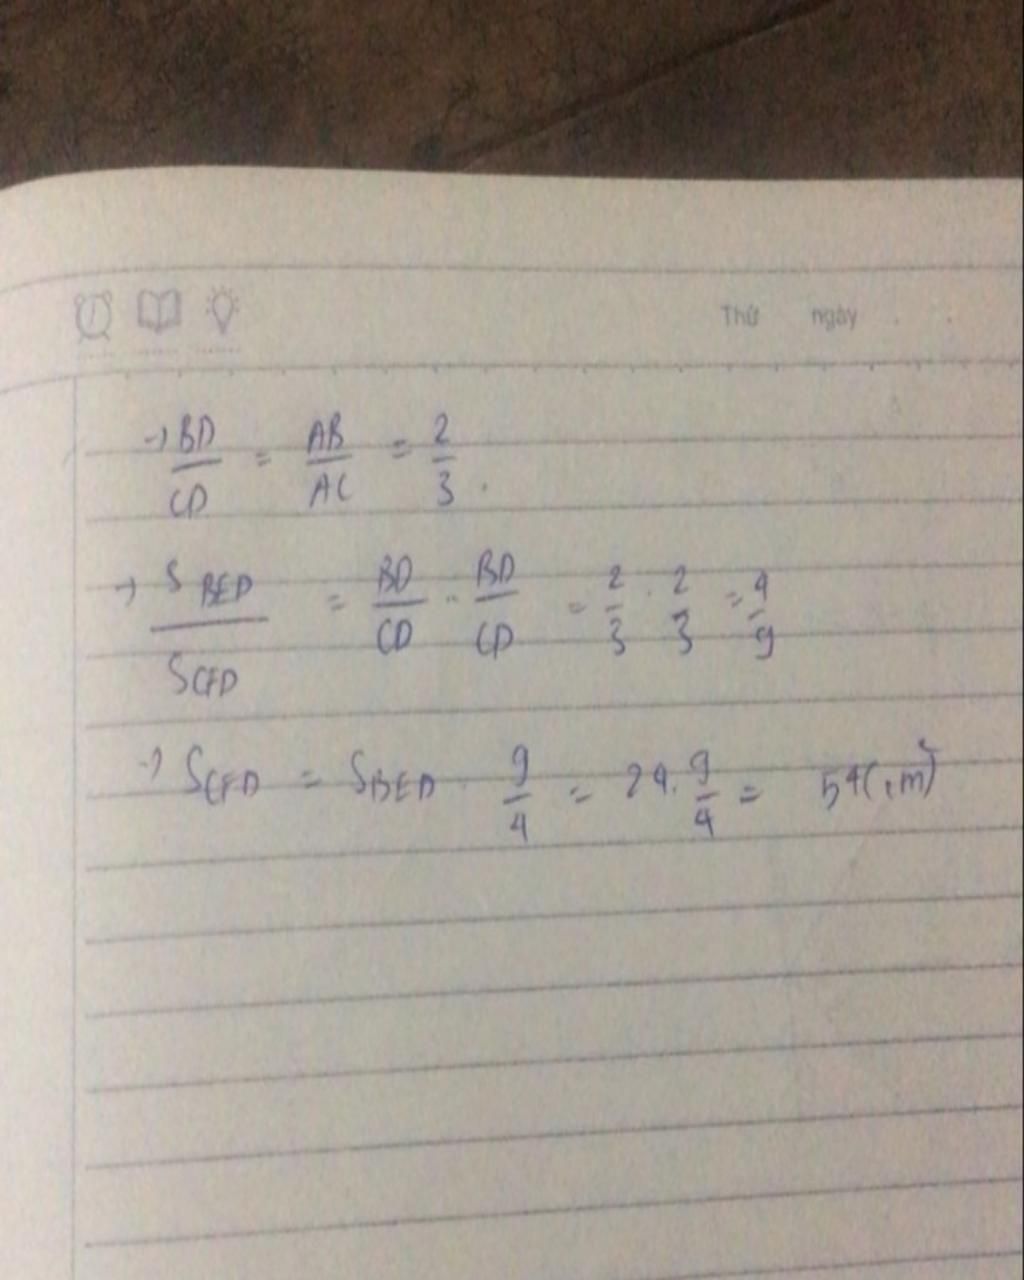 Thứ ngày
→ BD/CD = AB/AC = 2/3.
→ S BED / S CFD = BD/CD . BD/CD = 2/3 . 2/3 = 4/9
→ S CFD = S BED . 9/4 = 24 . 9/4 = 54 (cm²)